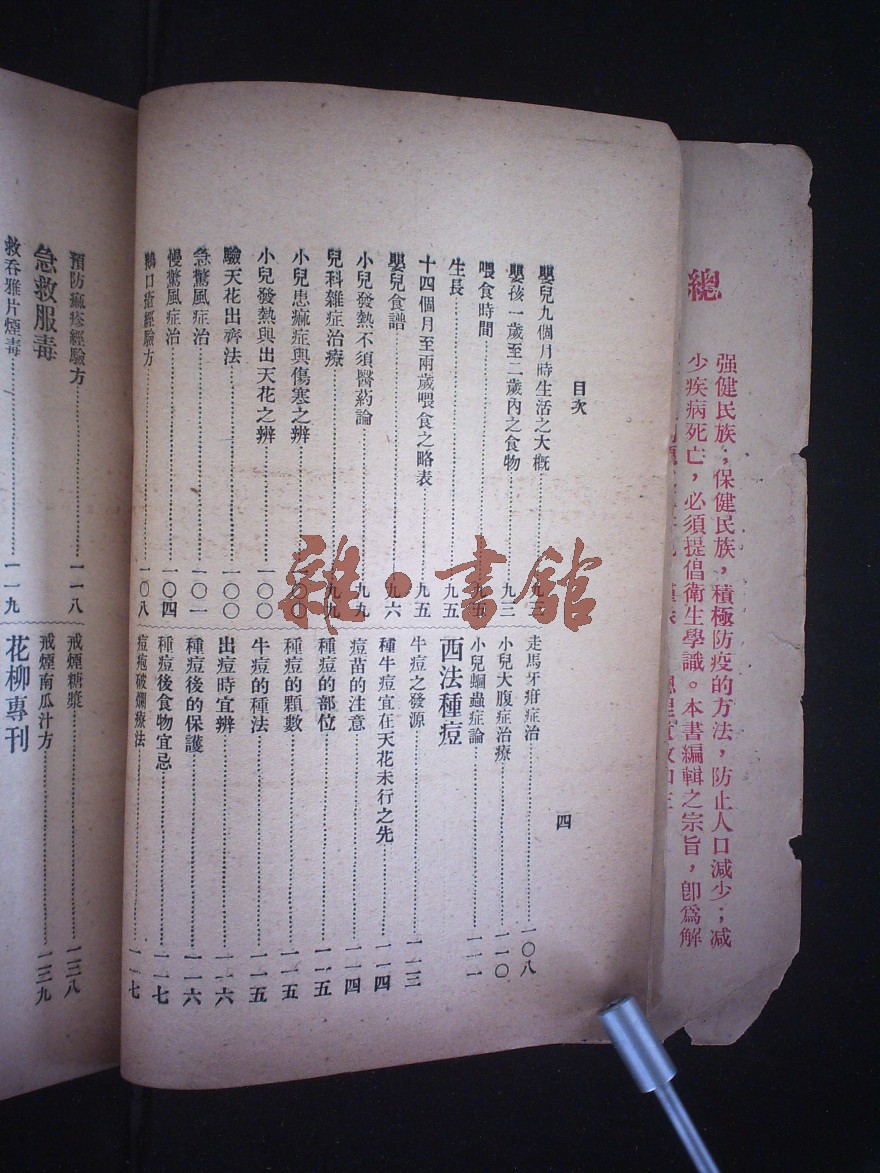 總
强健民族，保健民族，積極防疫的方法，防止人口減少；減
少疾病死亡，必須提倡衛生學識。本書編輯之宗旨，卽爲解
目次
四
嬰兒九個月時生活之大概 九三
嬰孩一歲至二歲內之食物 九三
喂食時間 九五
生長 九五
十四個月至兩歲喂食之略表 九五
嬰兒食譜 九六
小兒發熱不須醫葯論 九九
兒科雜症治療 九九
小兒患痲症與傷寒之辨 一〇〇
小兒發熱與出天花之辨 一〇〇
驗天花出齊法 一〇〇
急驚風症治 一〇一
慢驚風症治 一〇四
鵝口瘡經驗方 一〇八
走馬牙疳症治 一〇八
小兒大腹症治療 一一〇
小兒蛔蟲症論 一一一
西法種痘
牛痘之發源 一一三
種牛痘宜在天花未行之先 一一四
痘苗的注意 一一四
種痘的部位 一一五
種痘的顆數 一一五
牛痘的種法 一一五
出痘時宜辨 一一六
種痘後的保護 一一六
種痘後食物宜忌 一一七
痘疱破爛療法 一一七
預防痲疹經驗方 一一八
急救服毒
救吞雅片煙毒 一一九
戒煙糖漿 一三八
戒煙南瓜汁方 一三九
花柳專刊
雜·書館